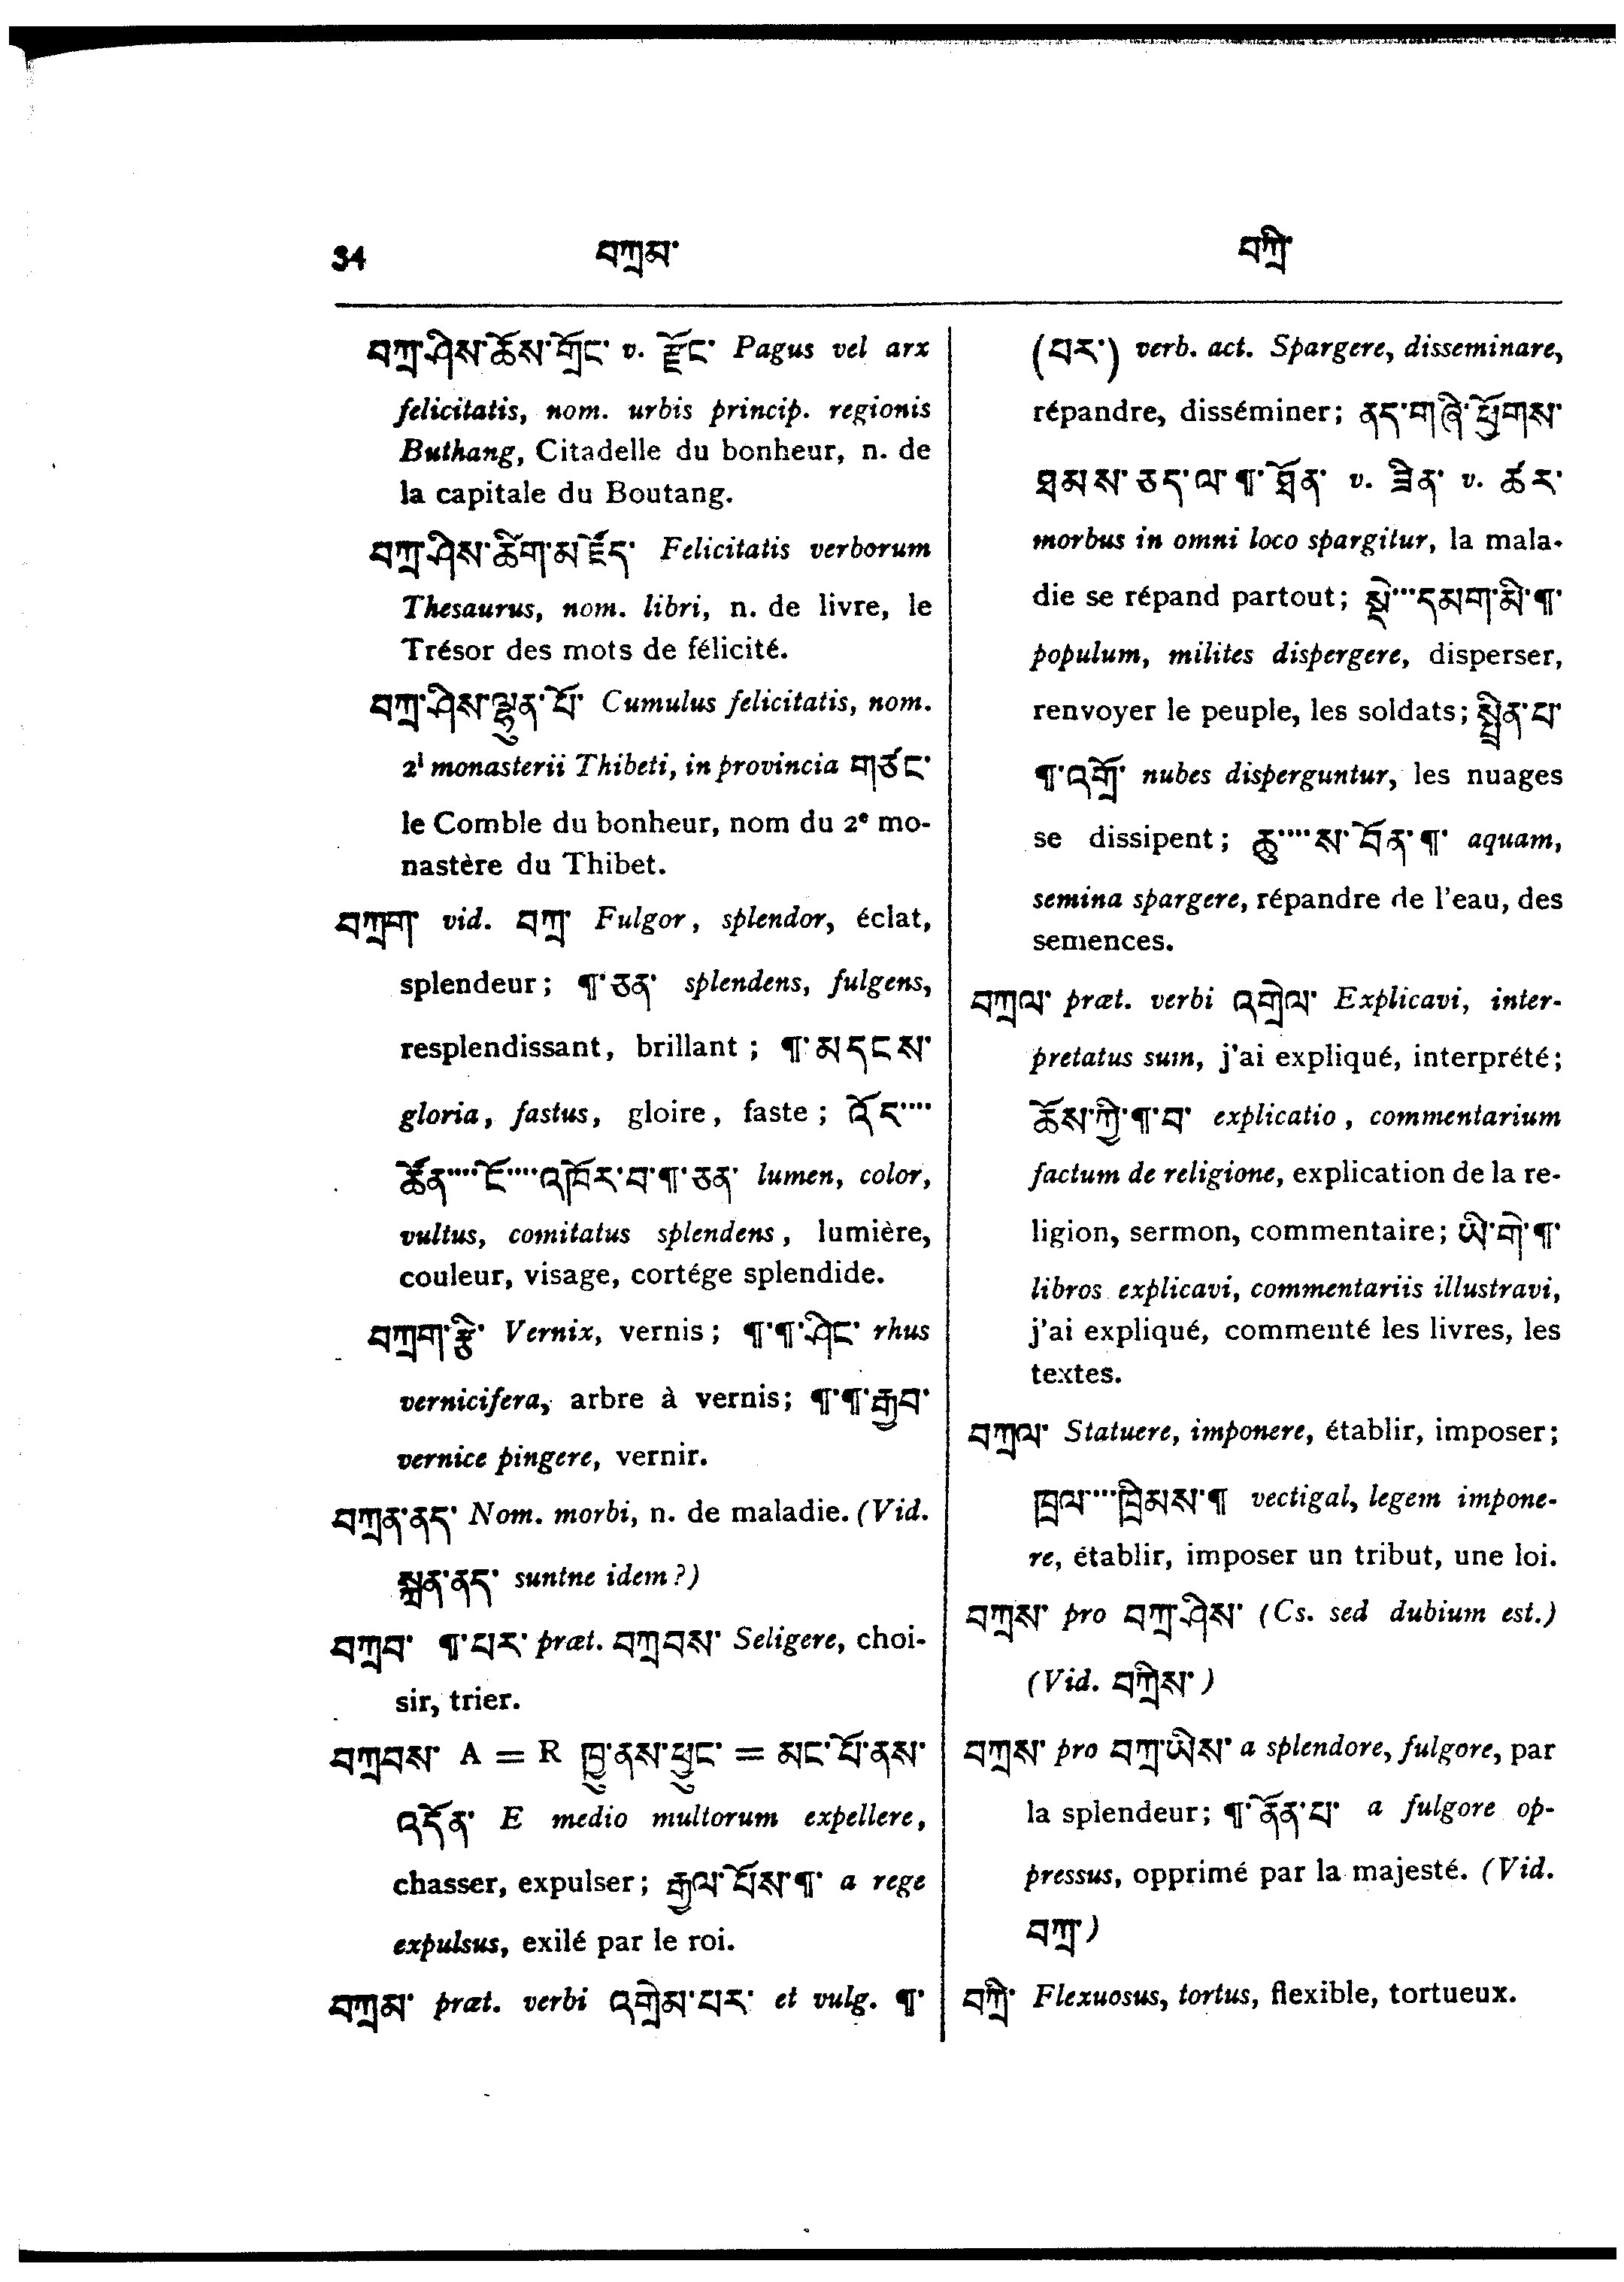 34 བཀྲམ་ བཀྲི་
བཀྲ་ཤིས་ཆོས་གྲོང་ v. རྫོང་ Pagus vel arx
felicitatis, nom. urbis princip. regionis
Buthang, Citadelle du bonheur, n. de
la capitale du Boutang.
བཀྲ་ཤིས་ཚིག་མཛོད་ Felicitatis verborum
Thesaurus, nom. libri, n. de livre, le
Trésor des mots de félicité.
བཀྲ་ཤིས་ལྷུན་པོ་ Cumulus felicitatis, nom.
2ⁱ monasterii Thibeti, in provincia གཙང་
le Comble du bonheur, nom du 2ᵉ mo-
nastère du Thibet.
བཀྲག་ vid. བཀྲ་ Fulgor, splendor, éclat,
splendeur; ¶་ཅན་ splendens, fulgens,
resplendissant, brillant; ¶་མདངས་
gloria, fastus, gloire, faste; འོད་····
ཚོན་····ངོ་····འཁོར་བ་¶་ཅན་ lumen, color,
vultus, comitatus splendens, lumière,
couleur, visage, cortége splendide.
བཀྲག་རྩི་ Vernix, vernis; ¶་¶་ཤིང་ rhus
vernicifera, arbre à vernis; ¶་¶་རྒྱབ་
vernice pingere, vernir.
བཀྲན་ནད་ Nom. morbi, n. de maladie. (Vid.
སྐྲན་ནད་ suntne idem?)
བཀྲབ་ ¶་པར་ præt. བཀྲབས་ Seligere, choi-
sir, trier.
བཀྲབས་ A = R ཁྱུ་ནས་ཕྱུང་ = མང་པོ་ནས་
འདོན་ E medio multorum expellere,
chasser, expulser; རྒྱལ་པོས་¶་ a rege
expulsus, exilé par le roi.
བཀྲམ་ præt. verbi འགྲེམ་པར་ et vulg. ¶་
(པར་) verb. act. Spargere, disseminare,
répandre, disséminer; ནད་གཞི་ཕྱོགས་
ཐམས་ཅད་ལ་¶་ཐོན་ v. ཟིན་ v. ཚར་
morbus in omni loco spargitur, la mala-
die se répand partout; སྡེ་···དམག་མི་¶་
populum, milites dispergere, disperser,
renvoyer le peuple, les soldats; སྤྲིན་པ་
¶་འགྲོ་ nubes disperguntur, les nuages
se dissipent; ཆུ་····ས་བོན་¶་ aquam,
semina spargere, répandre de l'eau, des
semences.
བཀྲལ་ præt. verbi འགྲེལ་ Explicavi, inter-
pretatus sum, j'ai expliqué, interprété;
ཆོས་ཀྱི་¶་བ་ explicatio, commentarium
factum de religione, explication de la re-
ligion, sermon, commentaire; ཡི་གེ་¶་
libros explicavi, commentariis illustravi,
j'ai expliqué, commenté les livres, les
textes.
བཀྲལ་ Statuere, imponere, établir, imposer;
ཁྲལ་···ཁྲིམས་¶ vectigal, legem impone-
re, établir, imposer un tribut, une loi.
བཀྲས་ pro བཀྲ་ཤིས་ (Cs. sed dubium est.)
(Vid. བཀྲིས་)
བཀྲས་ pro བཀྲ་ཡིས་ a splendore, fulgore, par
la splendeur; ¶་ནོན་པ་ a fulgore op-
pressus, opprimé par la majesté. (Vid.
བཀྲ་)
བཀྲི་ Flexuosus, tortus, flexible, tortueux.